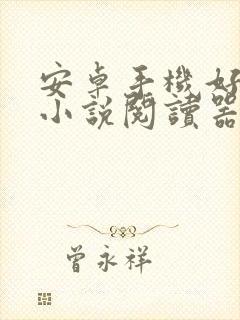 安卓手機好
小説閱讀器
曾永祥